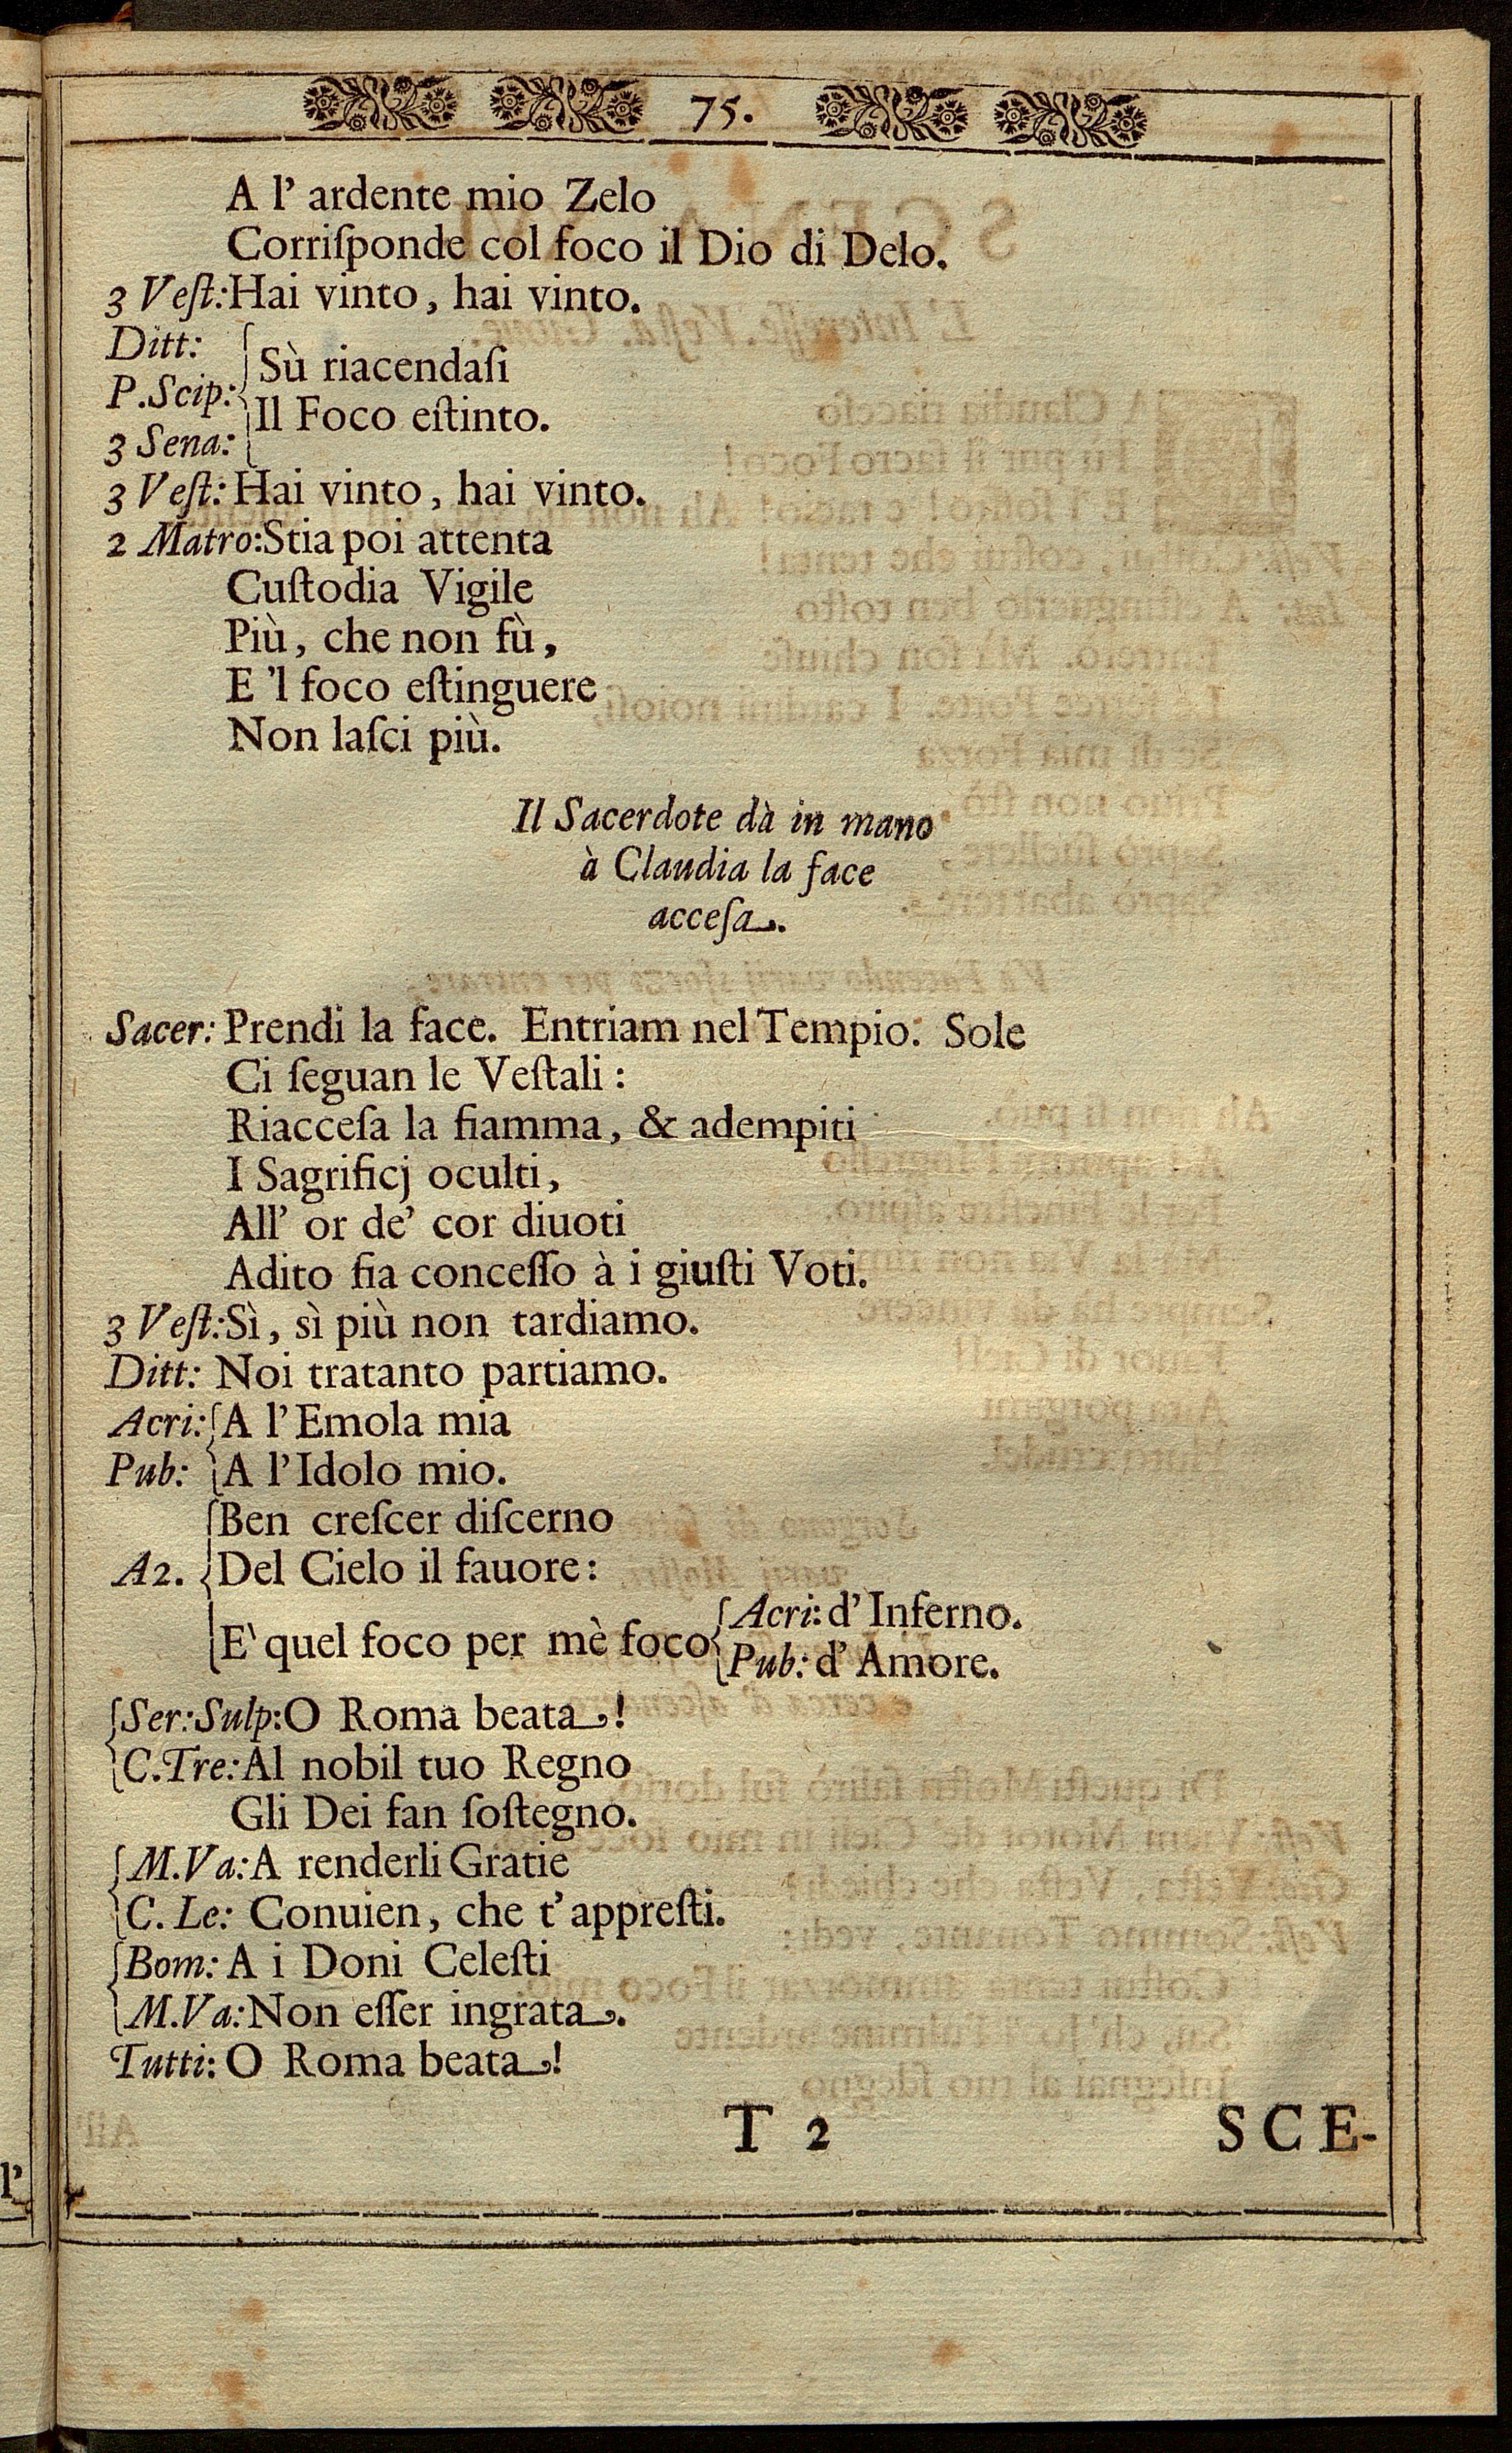 75.
A l' ardente mio Zelo
Corriſponde col foco il Dio di Delo.
3 Veſt: Hai vinto, hai vinto.
Ditt:
P.Scip:
3 Sena:
Sù riacendaſi
Il Foco eſtinto.
3 Veſt: Hai vinto, hai vinto.
2 Matro: Stia poi attenta
Cuſtodia Vigile
Più, che non fù,
E 'l foco eſtinguere
Non laſci più.
Il Sacerdote dà in mano
à Claudia la face
acceſa.
Sacer: Prendi la face. Entriam nel Tempio. Sole
Ci ſeguan le Veſtali:
Riacceſa la fiamma, & adempiti
I Sagrificj oculti,
All' or de' cor diuoti
Adito fia conceſſo à i giuſti Voti.
3 Veſt: Sì, sì più non tardiamo.
Ditt: Noi tratanto partiamo.
Acri: A l'Emola mia
Pub: A l'Idolo mio.
Ben creſcer diſcerno
A2. Del Cielo il fauore:
E' quel foco per mè foco
Acri: d' Inferno.
Pub: d' Amore.
Ser: Sulp: O Roma beata!
C.Tre: Al nobil tuo Regno
Gli Dei fan ſoſtegno.
M.Va: A renderli Gratie
C. Le: Conuien, che t' appreſti.
Bom: A i Doni Celeſti
M.Va: Non eſſer ingrata.
Tutti: O Roma beata!
T 2 SCE-